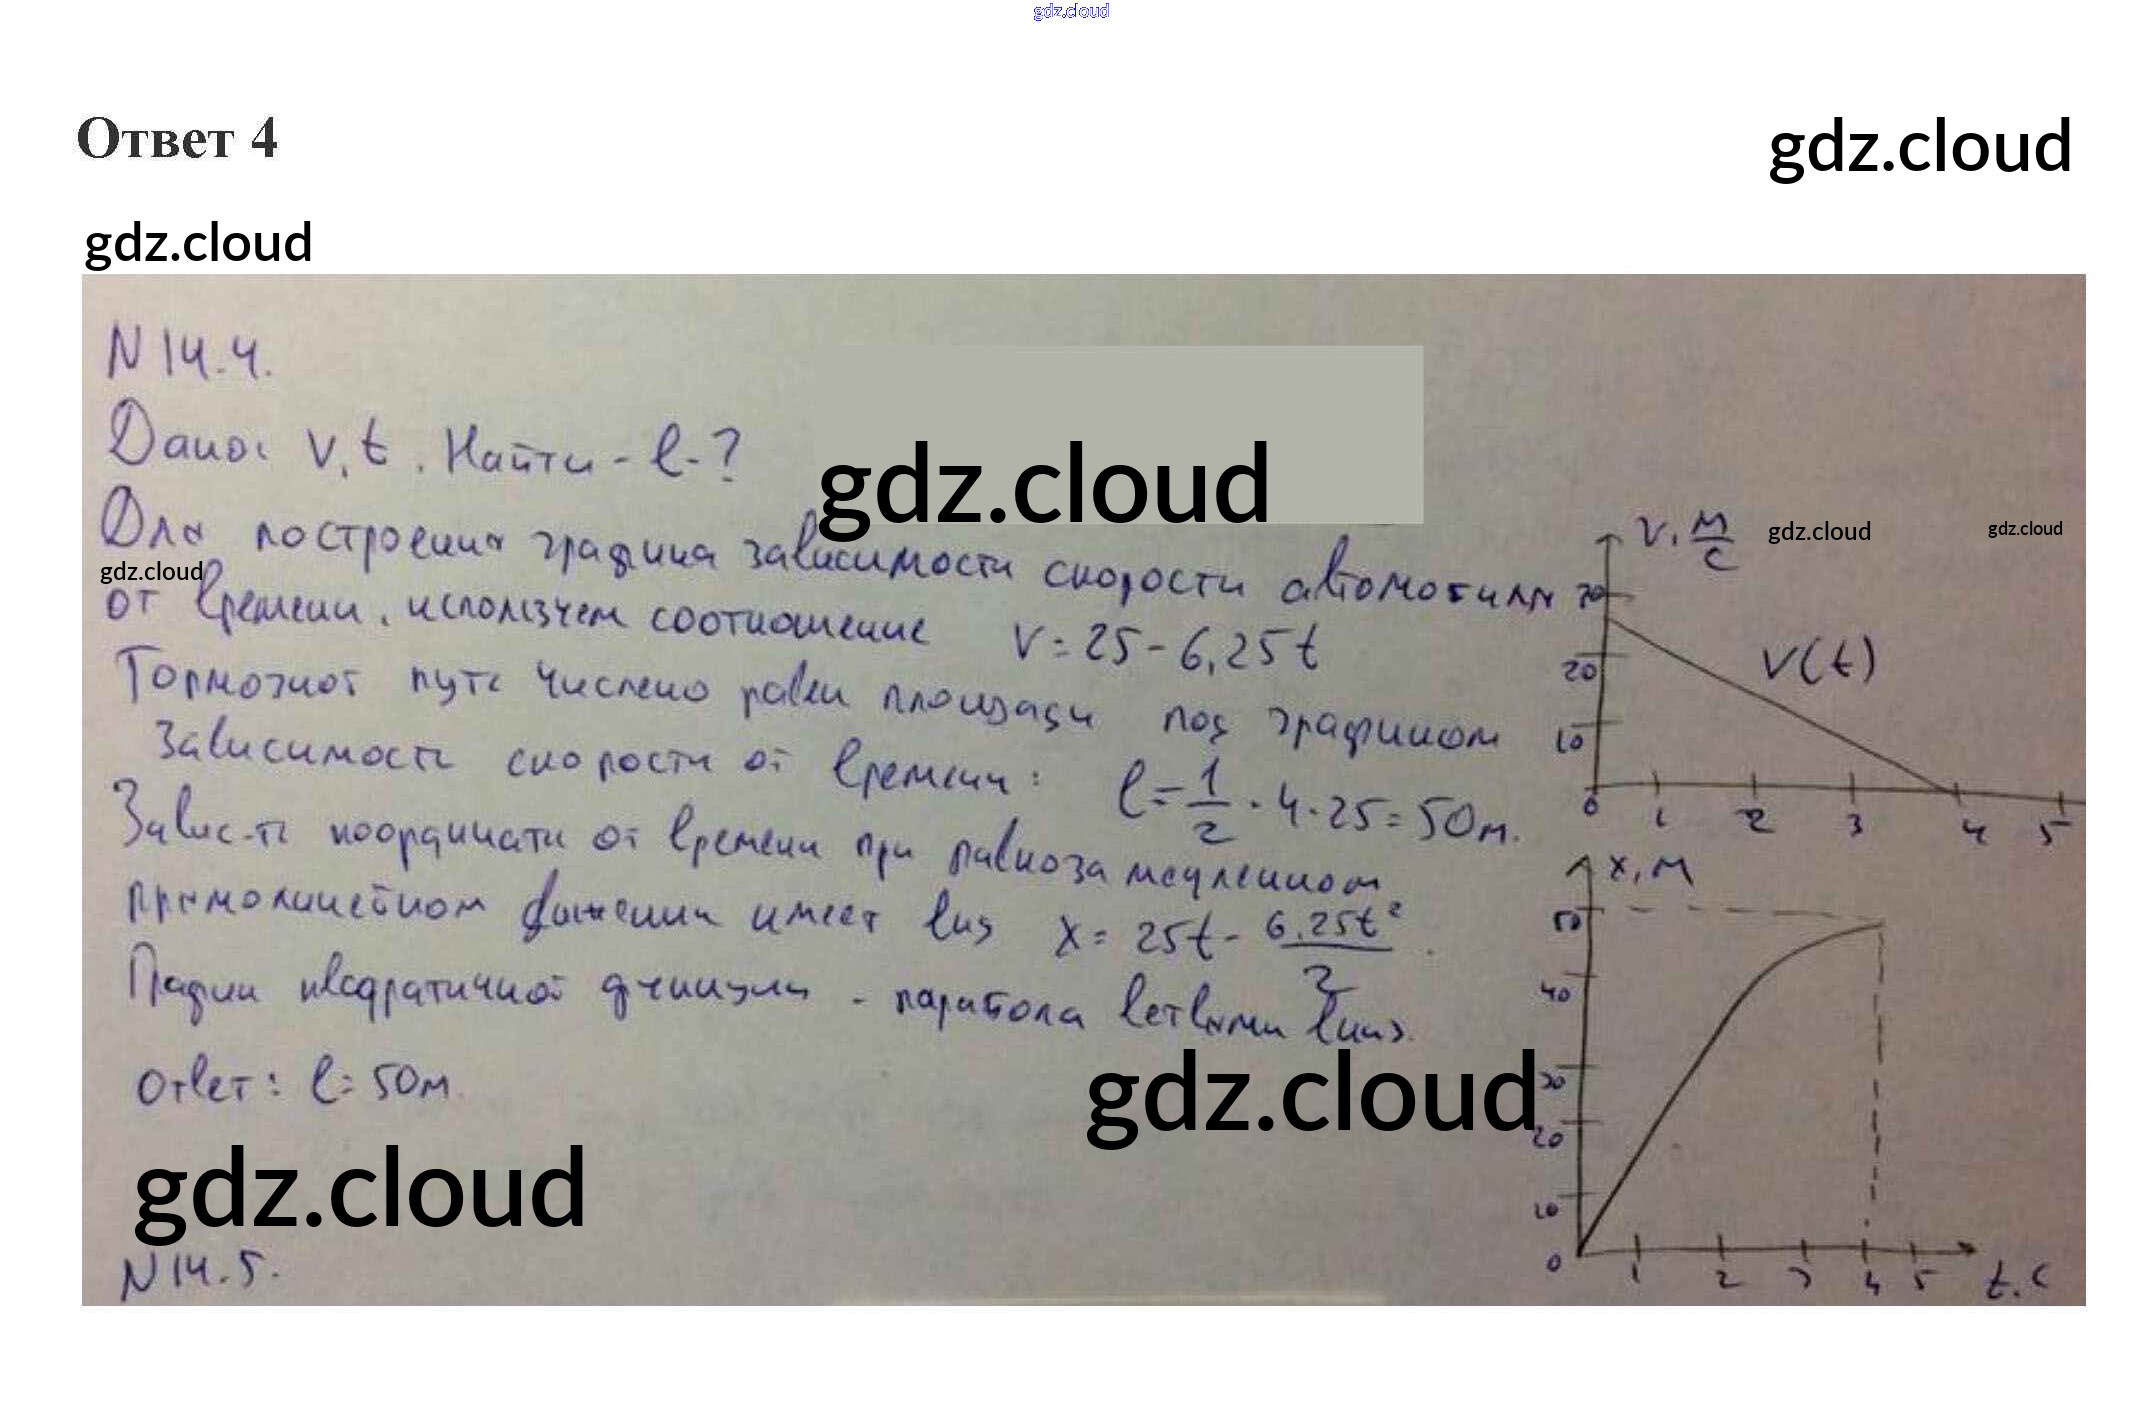 gdz.cloud
Ответ 4
gdz.cloud
gdz.cloud
N 14.4.
Дано: v, t. Найти - l-?
gdz.cloud
Для построения графика зависимости скорости автомобиля
gdz.cloud
от времени, используем соотношение v = 25 - 6,25t
Тормозной путь числено равен площади под графиком
зависимость скорости от времени: l = 1/2 · 4 · 25 = 50м.
Завис-ть координати от времени при равнозамедленном
прямолинейном движении имеет вид x = 25t - 6,25t²/2.
График квадратичной функции - парабола ветвями вниз.
Ответ: l = 50м.
gdz.cloud
gdz.cloud
N 14.5.
v, м/с
gdz.cloud
gdz.cloud
30
20
10
v(t)
0 1 2 3 4 5
x, м
50
40
30
20
10
0 1 2 3 4 5 t, c